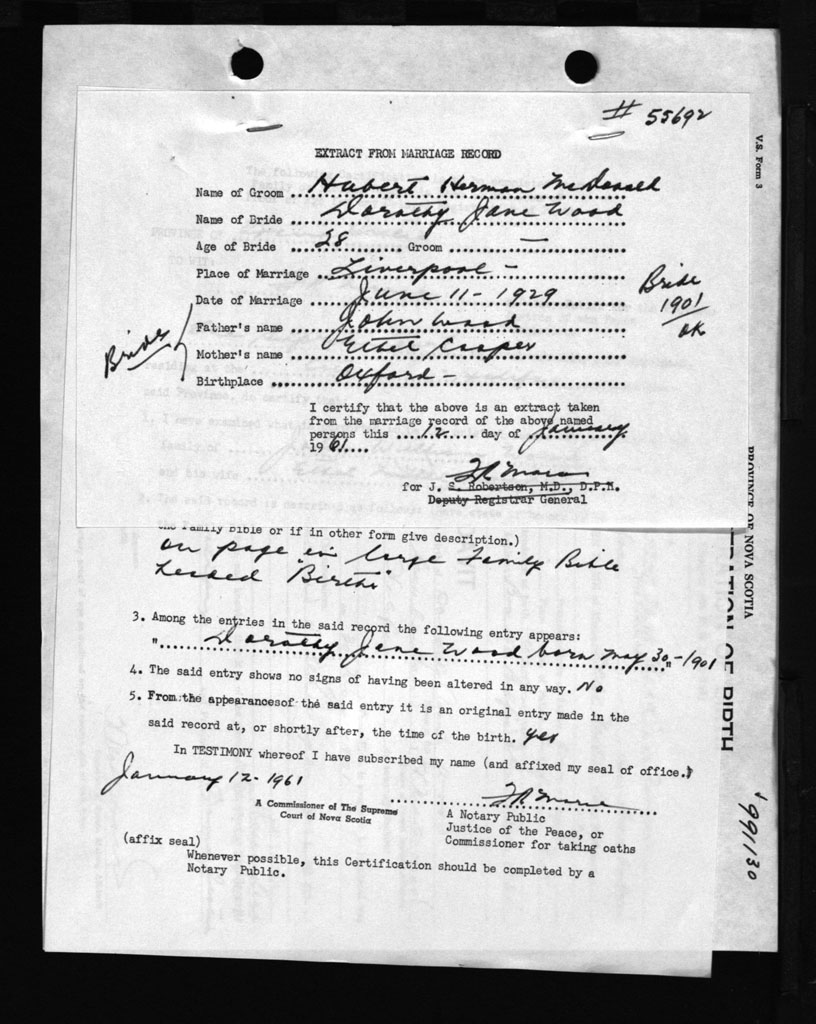 # 55692
V.S. Form 3
EXTRACT FROM MARRIAGE RECORD
Name of Groom ... Hubert Herman McDonald
Name of Bride ... Dorothy Jane Wood
Age of Bride ... 28 ... Groom ... —
Place of Marriage ... Liverpool –
Date of Marriage ... June 11 - 1929
Bride
1901
OK
Brides
Father's name ... John Wood
Mother's name ... Ethel Cooper
Birthplace ... Oxford –
I certify that the above is an extract taken
from the marriage record of the above named
persons this ... 12 ... day of January
1961
for J. S. Robertson, M.D., D.P.H.
Deputy Registrar General
PROVINCE OF NOVA SCOTIA
OF BIRTH
the Family Bible or if in other form give description.)
on page in large Family Bible
headed "Births"
3. Among the entries in the said record the following entry appears:
" ... Dorothy Jane Wood born May 30 " - 1901
4. The said entry shows no signs of having been altered in any way. No
5. From the appearances of the said entry it is an original entry made in the
said record at, or shortly after, the time of the birth. Yes
In TESTIMONY whereof I have subscribed my name (and affixed my seal of office.)
January 12 - 1961
A Commissioner of The Supreme
Court of Nova Scotia
A Notary Public
Justice of the Peace, or
Commissioner for taking oaths
(affix seal)
Whenever possible, this Certification should be completed by a
Notary Public.
991130